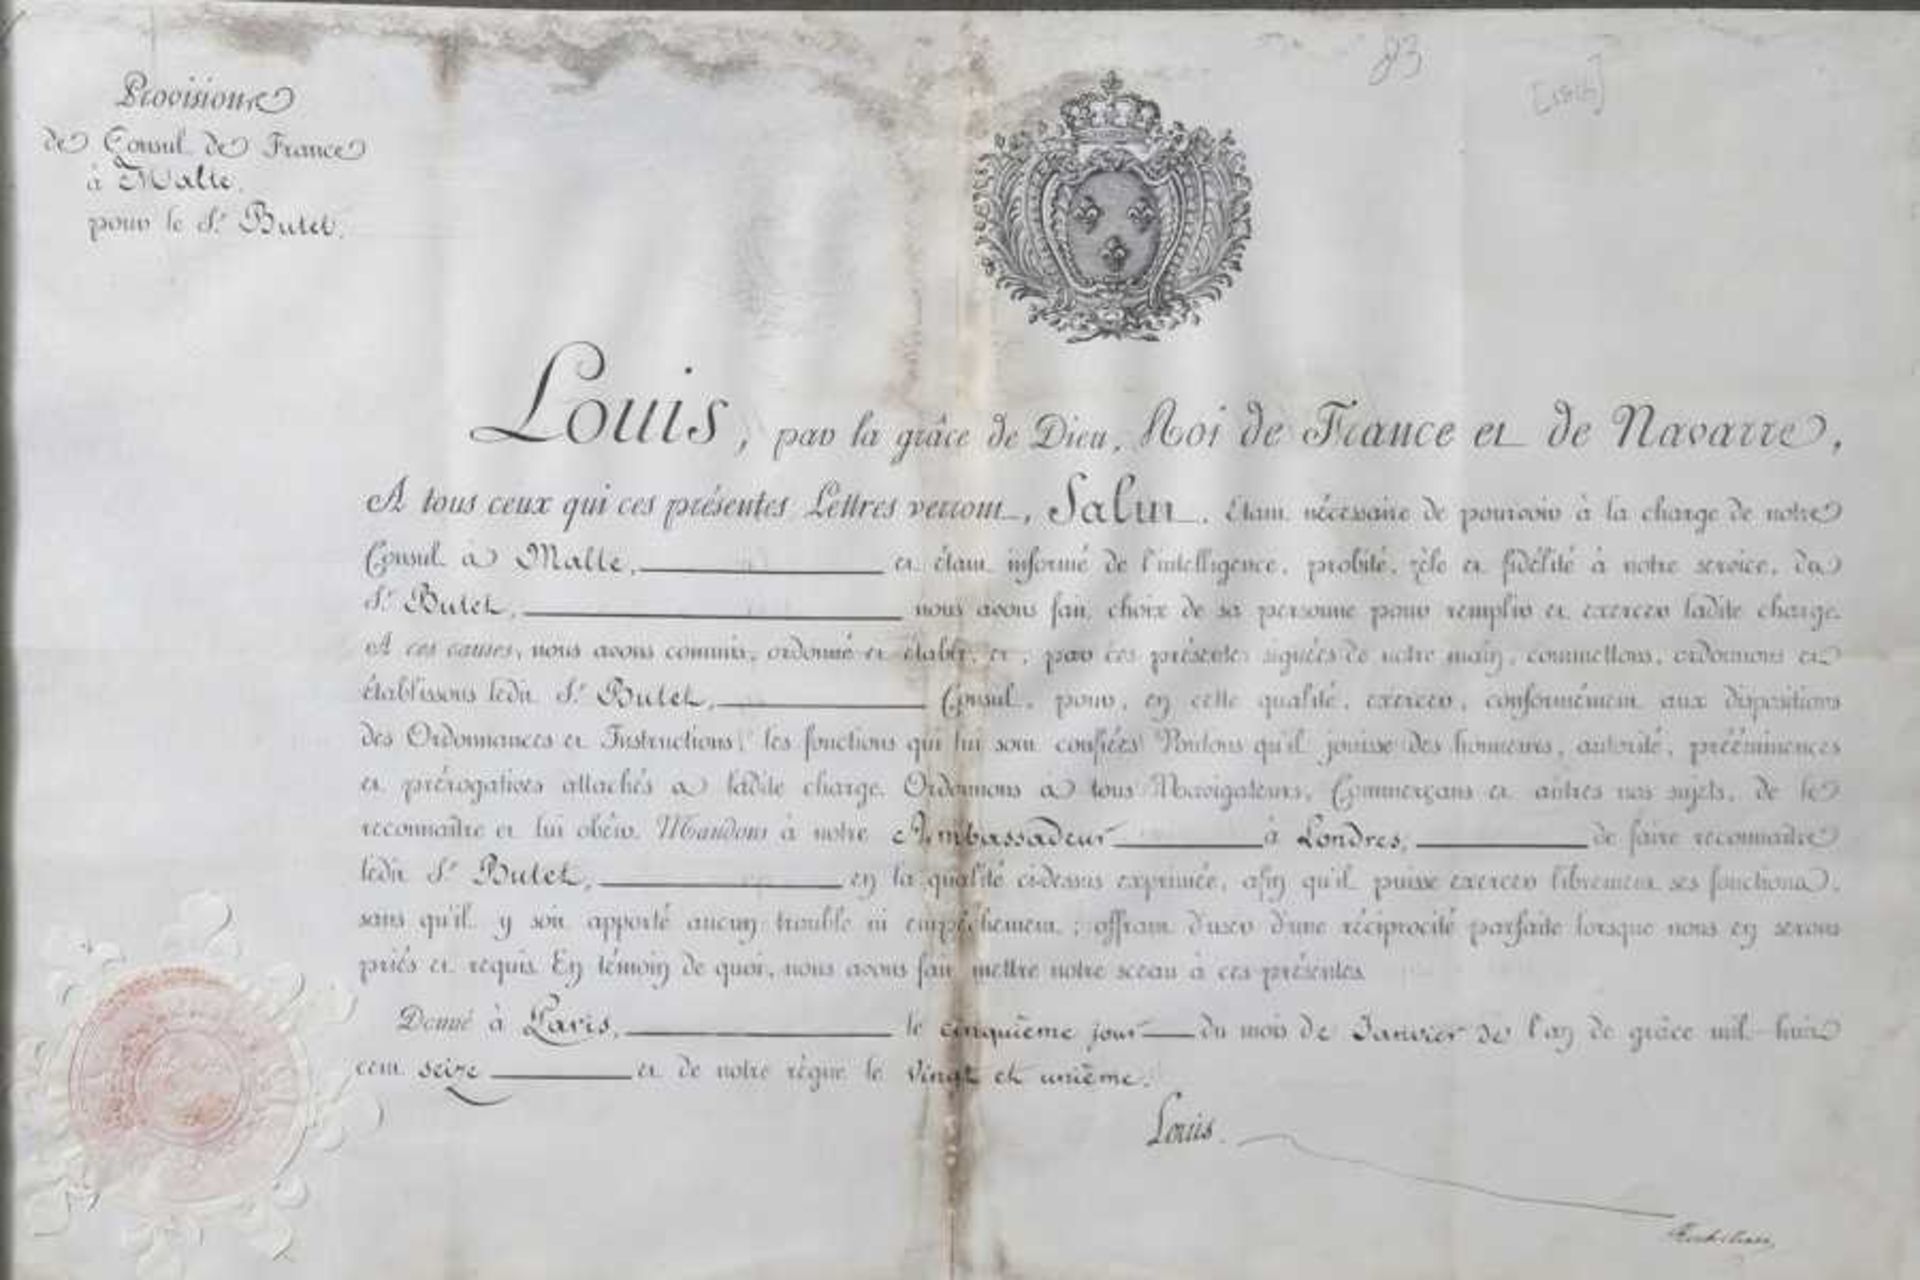 Provisions
de Consul de France
à Malte.
pour le Sr. Butet.
83
[1816]
Louis, par la grâce de Dieu, Roi de France et de Navarre,
A tous ceux qui ces présentes Lettres verront, Salut. Etant nécessaire de pourvoir à la charge de notre
Consul à Malte, et étant informé de l'intelligence, probité, zèle et fidélité à notre service, du
Sr. Butet, nous avons fait choix de sa personne pour remplir et exercer ladite charge.
A ces causes, nous avons commis, ordonné et établi, et, par ces présentes signées de notre main, commettons, ordonnons et
établissons ledit Sr. Butet, Consul, pour, en cette qualité, exercer, conformément aux dispositions
des Ordonnances et Instructions, les fonctions qui lui sont confiées. Voulons qu'il jouisse des honneurs, autorité, prééminences
et prérogatives attachés à ladite charge. Ordonnons à tous Navigateurs, Commerçans et autres nos sujets, de le
reconnaître et lui obéir. Mandons à notre Ambassadeur à Londres, de faire reconnaître
ledit Sr. Butet, en la qualité cidessus exprimée, afin qu'il puisse exercer librement ses fonctions,
sans qu'il y soit apporté aucun trouble ni empêchement; offrant d'user d'une réciprocité parfaite lorsque nous en serons
priés et requis. En témoin de quoi, nous avons fait mettre notre sceau à ces présentes.
Donné à Paris, le cinquième jour du mois de Janvier de l'an de grâce mil huit
cent seize et de notre règne le vingt et unième.
Louis.